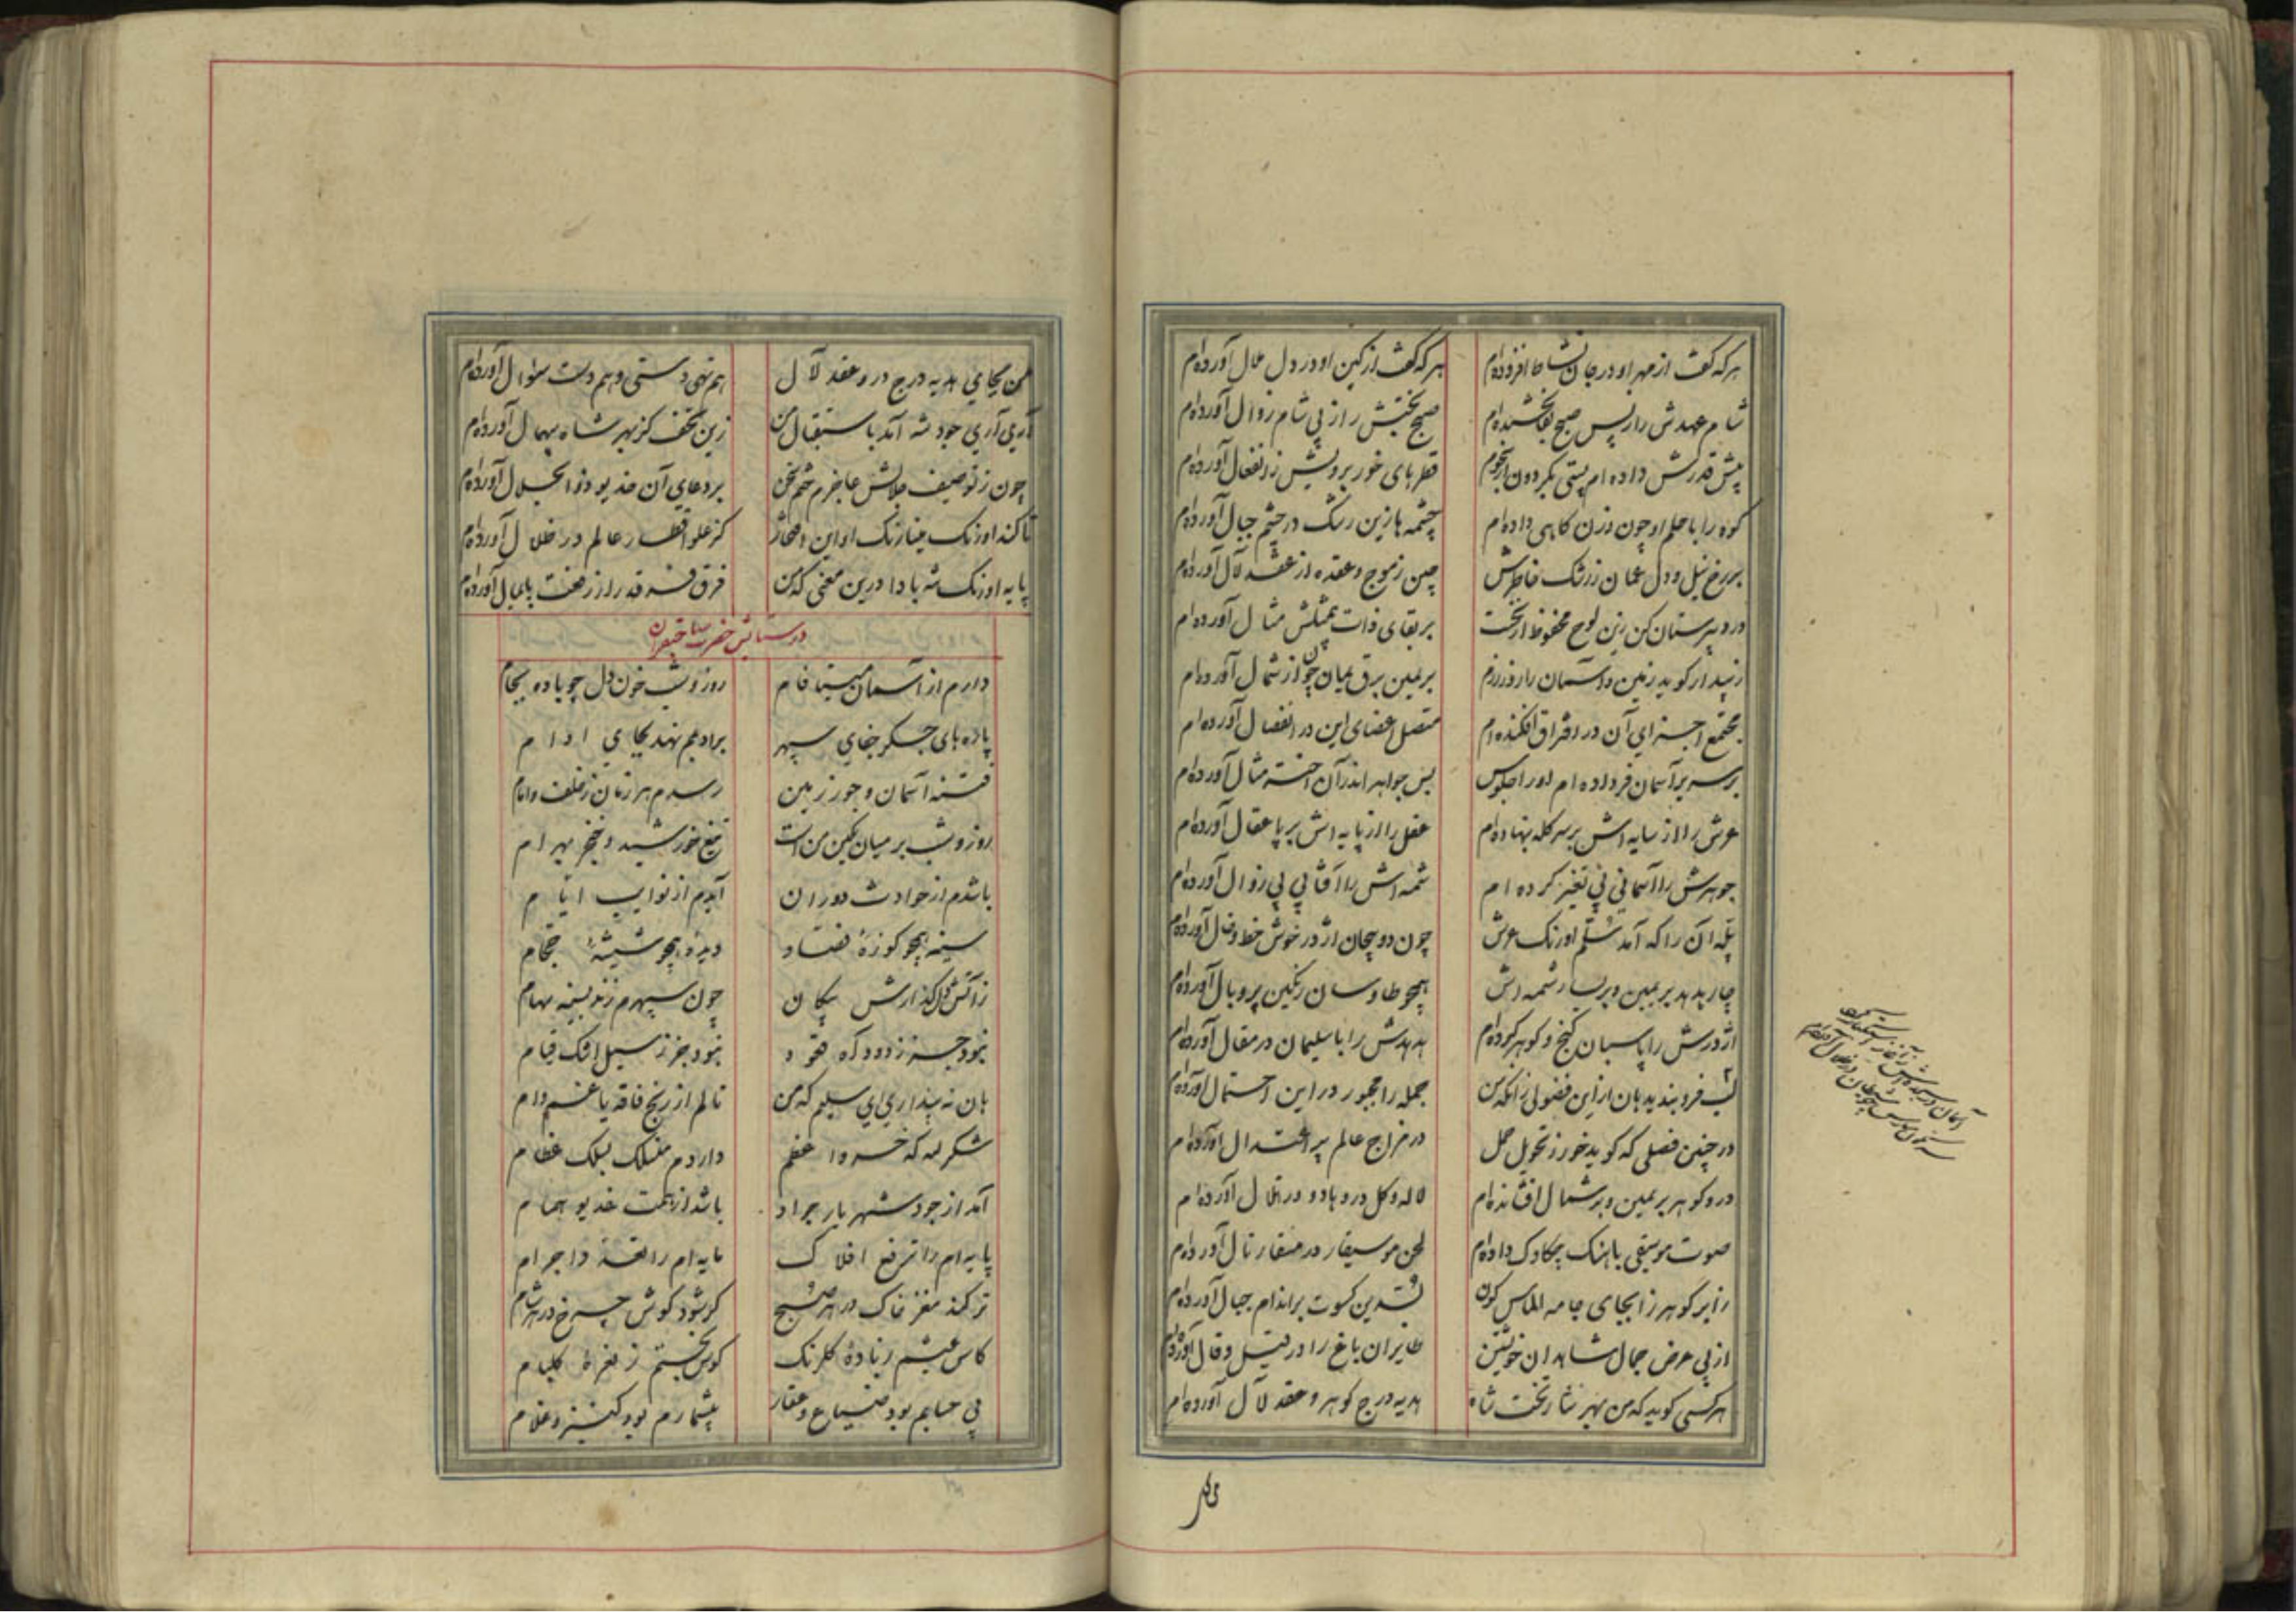 هر که گفت از مهر او در جان نشاط افزوده‌ام هر که گفت از کین او در دل ملال آورده‌ام
شام عهدش را ز پس صبح بقا بخشیده‌ام صبح بختش را ز پی شام زوال آورده‌ام
پیش قدرش داده‌ام پستی بگردون از نجوم قطرهای خور برویش ز انفعال آورده‌ام
کوه را با حلم او چون وزن کاهی داده‌ام چشمه‌ها زین رشک در چشم جبال آورده‌ام
بر رخ نیل و دل عمان ز رشک خاطرش چین ز موج و عقده از عقد لآل آورده‌ام
در دبیرستان کن زین لوح محفوظ از نخست بر بقای ذات بیمثلش مثال آورده‌ام
زیبد ار گوید زمین و آسمان را روز رزم بر یمین برق یمان چون از شمال آورده‌ام
مجتمع اجزای آن در افتراق افکنده‌ام متصل اعضای این در انفصال آورده‌ام
بر سریر آسمان فر داده‌ام او را جلوس بس جواهر اندر آن اختر مثال آورده‌ام
عرش را از سایه‌اش بر سر کله بنهاده‌ام عقل را از پایه‌اش بر پا عقال آورده‌ام
جوهرش را آسمانی بی تغیر کرده‌ام شمسه‌اش را آفتابی بی زوال آورده‌ام
پله آن را که آمد سلم اورنگ عرش چون دو پیچان اژدر خوش خط و خال آورده‌ام
چار هدهد بر یمین و بر یسار شمسه‌اش همچو طاوسان رنگین پر و بال آورده‌ام
اژدرش را پاسبان گنج و گوهر کرده‌ام هدهدش را با سلیمان در مقال آورده‌ام
لب فرو بندید هان از این فضولی زانکه من جمله را مجبور در این احتمال آورده‌ام
در چنین فصلی که گوید خور ز تحویل حمل در مزاج عالم پیر اعتدال آورده‌ام
در و گوهر بر یمین و بر شمال افشانده‌ام لاله و گل در وهاد و در تلال آورده‌ام
صوت موسیقی باهنگ چکاوک داده‌ام لحن موسیقار در منقار نال آورده‌ام
را بر گوهر زا بجای جامه الماس گون بسدین کسوت بر اندام جبال آورده‌ام
از پی عرض جمال شاهدان خویشتن طایران باغ را در قیل و قال آورده‌ام
هر کسی گوید که من بهر نثار تخت شاه هدیه درج گوهر و عقد لآل آورده‌ام
من بجای هدیه درج در و عقد لآل هم تهی دستی و هم دست سؤال آورده‌ام
آری آری جود شه آمد باستقبال من زین تحف کز بهر شاه بیهمال آورده‌ام
چون ز توصیف جلالش عاجزم ختم سخن بر دعای آن خدیو ذو الجلال آورده‌ام
تا کند اورنگ مینارنگ او این افتخار کز علو اقطار عالم در ظلال آورده‌ام
پایه اورنگ شه بادا درین معنی که من فرق فرقد را ز رفعت پایمال آورده‌ام
در ستایش حضرت صاحبقران
دارم از آسمان مینا فام روز و شب خون دل چو باده بجام
پاره‌های جگر جفای سپهر برادیمم نهد بجای ادام
فتنه آسمان و جور زمین رسدم هر زمان ز خلف و امام
روز و شب بر میان بکین من است تیغ خورشید و خنجر بهرام
باشدم از حوادث دوران آیدم از نوایب ایام
سینه همچو کوزهٔ فصاد دیده همچو شیشهٔ حجام
ز آتش دل گدازش پیکان چون سپهرم زند بسینه سهام
نبود جز ز دود آه قعود نبود جز ز سیل اشک قیام
هان نه پنداری ای سلیم که من نالم از رنج فاقه یا غم وام
شکر لله که خسرو اعظم داردم منسلک بسلک عظام
آمد از جود شهریار جواد باشد از همت خدیو همام
پایه‌ام را ترفع افلاک مایه‌ام را تعدد اجرام
تر کند مغز خاک در هر صبح کر شود گوش چرخ در هر شام
کاس عیشم ز بادهٔ گلرنگ کوس بختم ز نعرهٔ کلیام
بی حسابم بود ضیاع و عقار بیشمارم بود کنیز و غلام